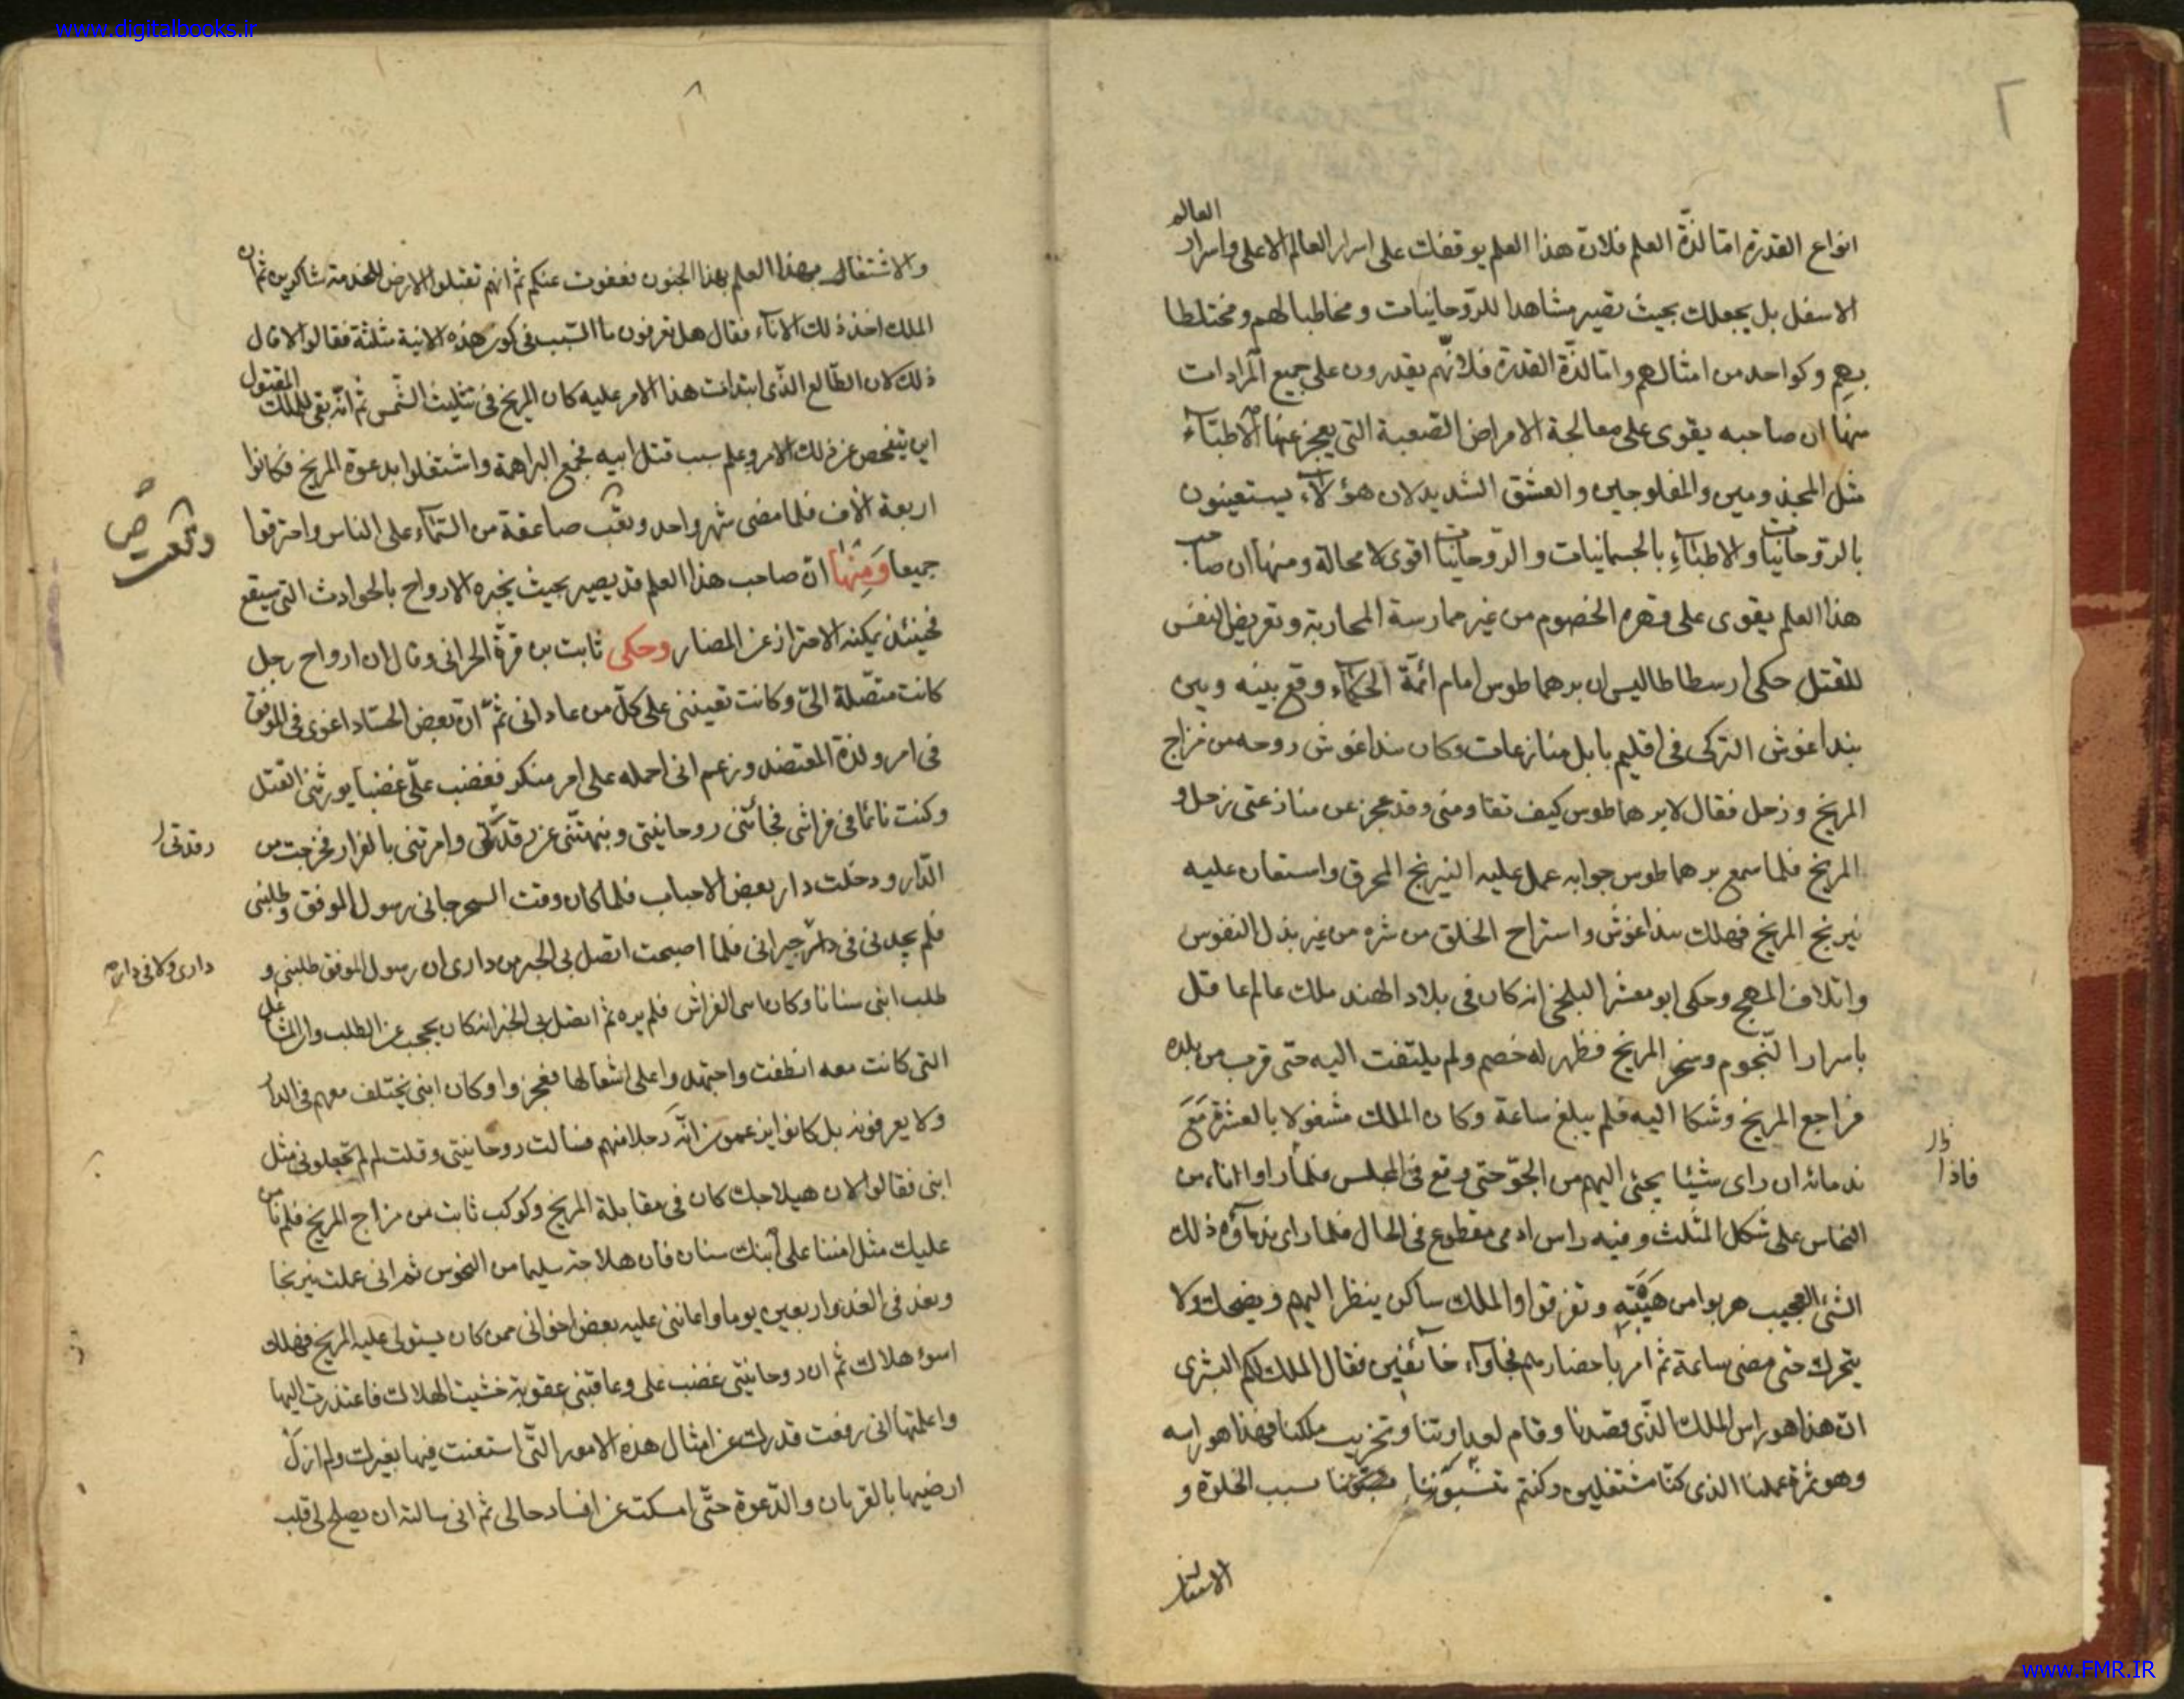 www.digitalbooks.ir
٦
العالم
انواع القدرة امّا لذّة العلم فلانّ هذا العلم يوقفك على اسرار العالم الاعلى واسرار
الاسفل بل يجعلك بحيث تصير مشاهدا للرّوحانيات ومخاطبا لهم ومختلطا
بهم وكواحد من امثالهم وامّا لذّة القدرة فلانّهم يقدرون على جميع المرادات
منها ان صاحبه يقوى على معالجة الامراض الصّعبة التى يعجز عنها الاطبّاء
مثل المجذومين والمفلوجين والعشق الشديد لان هؤلاء يستعينون
بالرّوحانيات والاطبّاء بالجسمانيات والرّوحانيات اقوى لا محالة ومنها ان صاحب
هذا العلم يقوى على قهره الخصوم من غير ممارسة المحاربة وتعريض النفس
للقتل حكى ارسطاطاليس ان برهماطوس امام ائمّة الحكماء وقع بينه وبين
بنداغوش التركى فى اقليم بابل منازعات وكان بنداغوش روحه من مزاج
المريخ وزحل فقال لا برهماطوس كيف تقاومنى وقد عجز عن منازعتى زحل و
المريخ فلما سمع برهماطوس جوابه عمل عليه النيرنج المحرق واستعان عليه
نيرنج المريخ فهلك بنداغوش واستراح الخلق من شره من غير بذل النفوس
واتلاف المهج وحكى ابو معشر البلخى انه كان فى بلاد الهند ملك عالم عاقل
باسرار النّجوم وسخر المريخ فظهر له خصم ولم يلتفت اليه حتى قرب من بلده
فراجع المريخ وشكا اليه فلم يبلغ ساعة وكان الملك مشغولا بالعشرة مَعَ
ندمائه ان راى شيئا يجئ اليهم من الجوّ حتى وقع فى المجلس فلما راوا اناء من
فاذا
النحاس على شكل المثلث وفيه راس ادمى مقطوع فى الحال فلما راى ندماؤه ذلك
الشئ العجيب هربوا من هَيْبَتِه وتفرقوا والملك ساكن ينظر اليهم ويضحك ولا
يتحرك حتى مضى ساعة ثم امر باحضارهم فجاؤاء خائفين فقال الملك لكم البشرى
انّ هذا هو راس الملك الذّى قصدنا وقام لعداوتنا وتخريب ملكنا فهذا هو راسه
وهو ثمرة عملنا الذى كنّا مشتغلين وكنتم تنسبوننا بسبب الخلوة و
الاشتغال
٨
والاشتغال بهذا العلم بهذا الجنون فعفوت عنكم ثم انهم تقبلوا الارض للخدمة شاكرين ثم ان
الملك اخذ ذلك الاناء فقال هل تعرفون ما السّبب فى كون هذه الانية مثلثة فقالوا لا قال
ذلك لان الطّالع الّذى ابتدات هذا الامر عليه كان المريخ فى تثليث الشّمس ثم انّه بقى للملك المقتول
ابن يتفحص عن ذلك الامر وعلم سبب قتل ابيه فجمع البراهمة واشتغلوا بدعوة المريخ فكانوا
اربعة الاف فلما مضى شهر واحد وقعت صاعقة من السّماء على الناس واحترقوا
وقعت ص
جميعا وَمِنْها انّ صاحب هذا العلم قد يصير بحيث يخبره الارواح بالحوادث التى سيقع
فحينئذ يمكنه الاحتراز عن المضار وحكى ثابت بن قرّة الحرانى وقال ان ارواح رجل
كانت متّصلة الىّ وكانت تعيننى على كلّ من عادانى ثمّ انّ بعض الحسّاد اغوى فى الموفق
فى امر ولدة المعتضد وزعم انى احمله على امر منكر فغضب علىّ غضبا يورثنى القتل
وكنت نائما فى فراشى فجائتنى روحانيتى ونبهتنى عن رقدتى وامرتنى بالفرار فخرجت من
رقدتى
الدّار ودخلت دار بعض الاحباب فلما كان وقت السحر جانى رسول الموفق وطلبنى
فلم يجدنى فى دار جيرانى فلما اصبحت اتصل بى الخبر من دارى ان رسول الموفق طلبنى و
دارى ولا فى دار
طلب ابنى سنانا وكان على الفراش فلم يره ثم اتصل بى الخبر انه كان يحجب عن الطلب وان المشاعل
التى كانت معه انطفت واجتهدوا على اشعالها فعجزوا وكان ابنى يختلف معهم فى الدار
ولا يعرفونه بل كانوا يزعمون انّه رجلا منهم فسالت روحانيتى وقلت لم لم تجعلونى مثل
ابنى فقالوا لان هيلاجك كان فى مقابلة المريخ وكوكب ثابت من مزاج المريخ فلم نامن
عليك مثل امننا على ابنك سنان فان هلاجه سليما من النحوس ثم انى عملت نيرنجا
ونفذ فى العدو اربعين يوما واعاننى عليه بعض اخوانى ممن كان يستولى عليه المريخ فهلك
اسوء هلاك ثم ان روحانيتى غضب على وعاقبنى عقوبة خشيت الهلاك فاعتذرت اليها
واعلمتها انى رفعت قدرك عن امثال هذه الامور التّى استعنت فيها بغيرك ولم ازل
ارضيها بالقربان والدّعوة حتّى امسكت عن افساد حالى ثم انى سالته ان يصلح لى قلب
www.FMR.IR